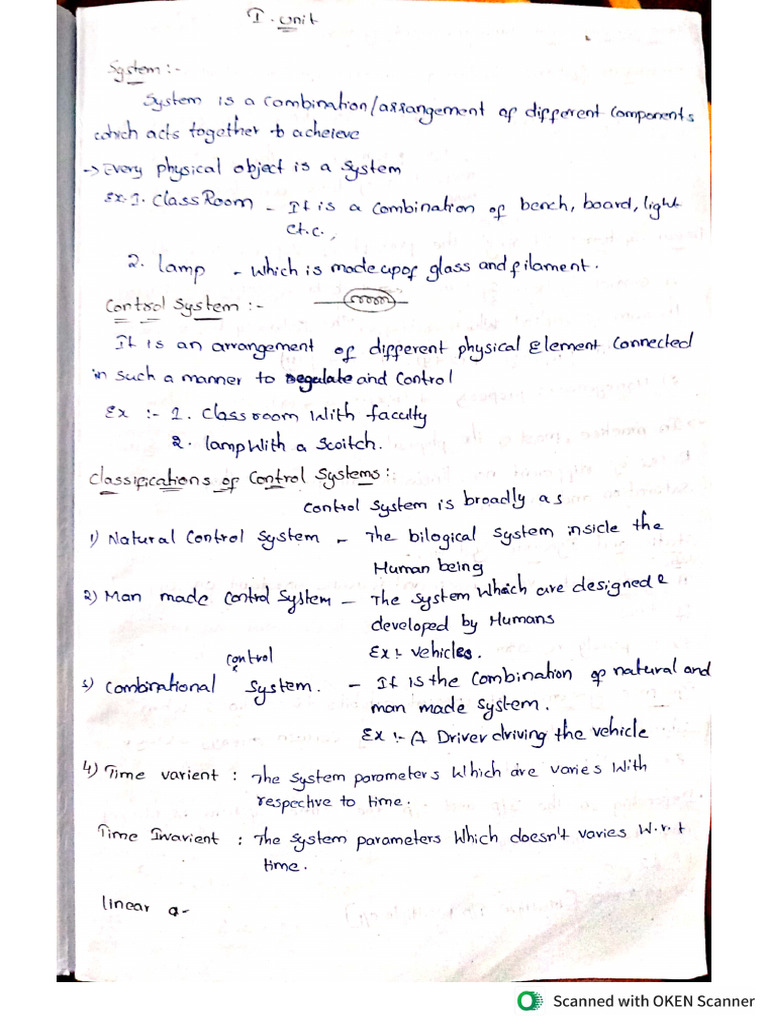 I. unit
System :-
System is a combination/arrangement of different components
which acts together to acheieve
→ Every physical object is a system
Ex. 1. Class Room - It is a combination of bench, board, light
et.c.,
2. lamp - which is made upof glass and filament.
Control System :-
It is an arrangement of different physical Element connected
in such a manner to regulate and control
Ex :- 1. Class room with faculty
2. lamp with a scoitch.
Classifications of Control Systems :-
control system is broadly as
1) Natural Control System - The bilogical system inside the
Human being
2) Man made control system - The system which are designed &
developed by Humans
Ex :- vehicles.
3) Combinational control system. - It is the combination of natural and
man made system.
Ex :- A Driver driving the vehicle
4) Time varient : The system parameters which are varies with
respective to time.
Time Invarient : The system parameters which doesn't varies w.r.t
time.
linear a-
Scanned with OKEN Scanner